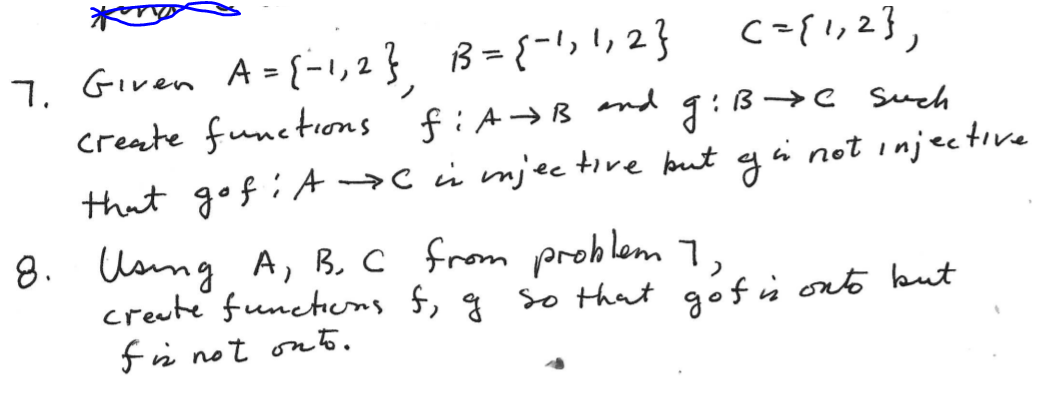 7. Given A = {-1, 2}, B = {-1, 1, 2} C = {1, 2},
create functions f : A → B and g : B → C such
that g∘f : A → C is injective but g is not injective
8. Using A, B, C from problem 7,
create functions f, g so that g∘f is onto but
f is not onto.